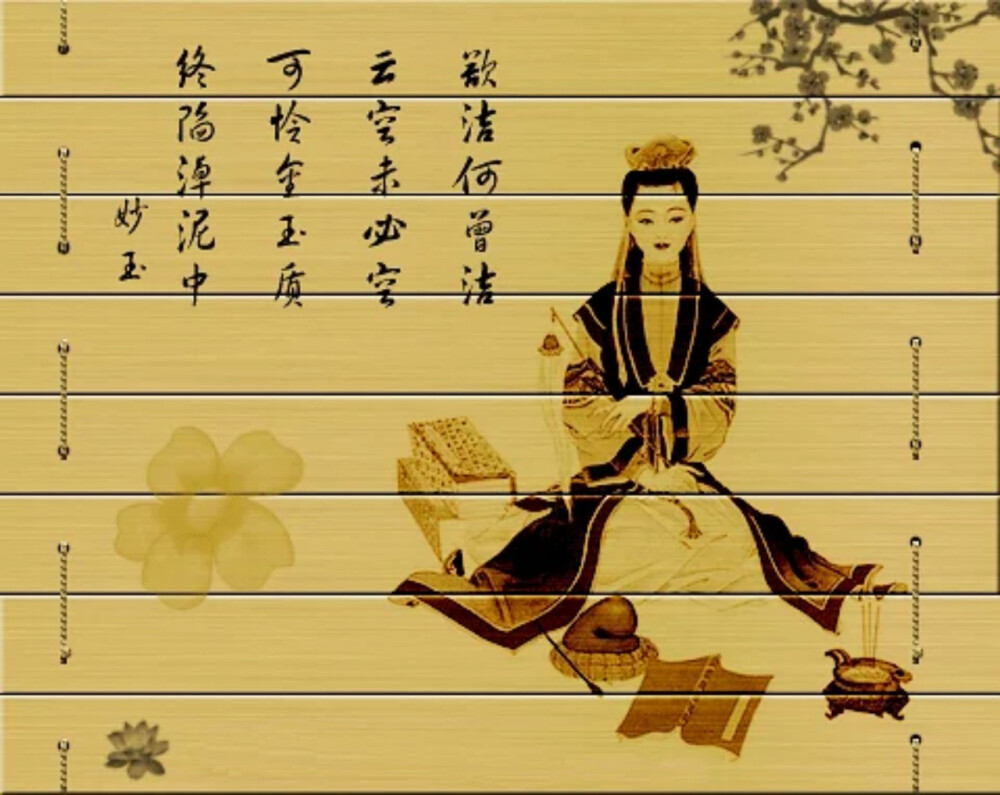 欲洁何曾洁
云空未必空
可怜金玉质
终陷淖泥中
妙玉